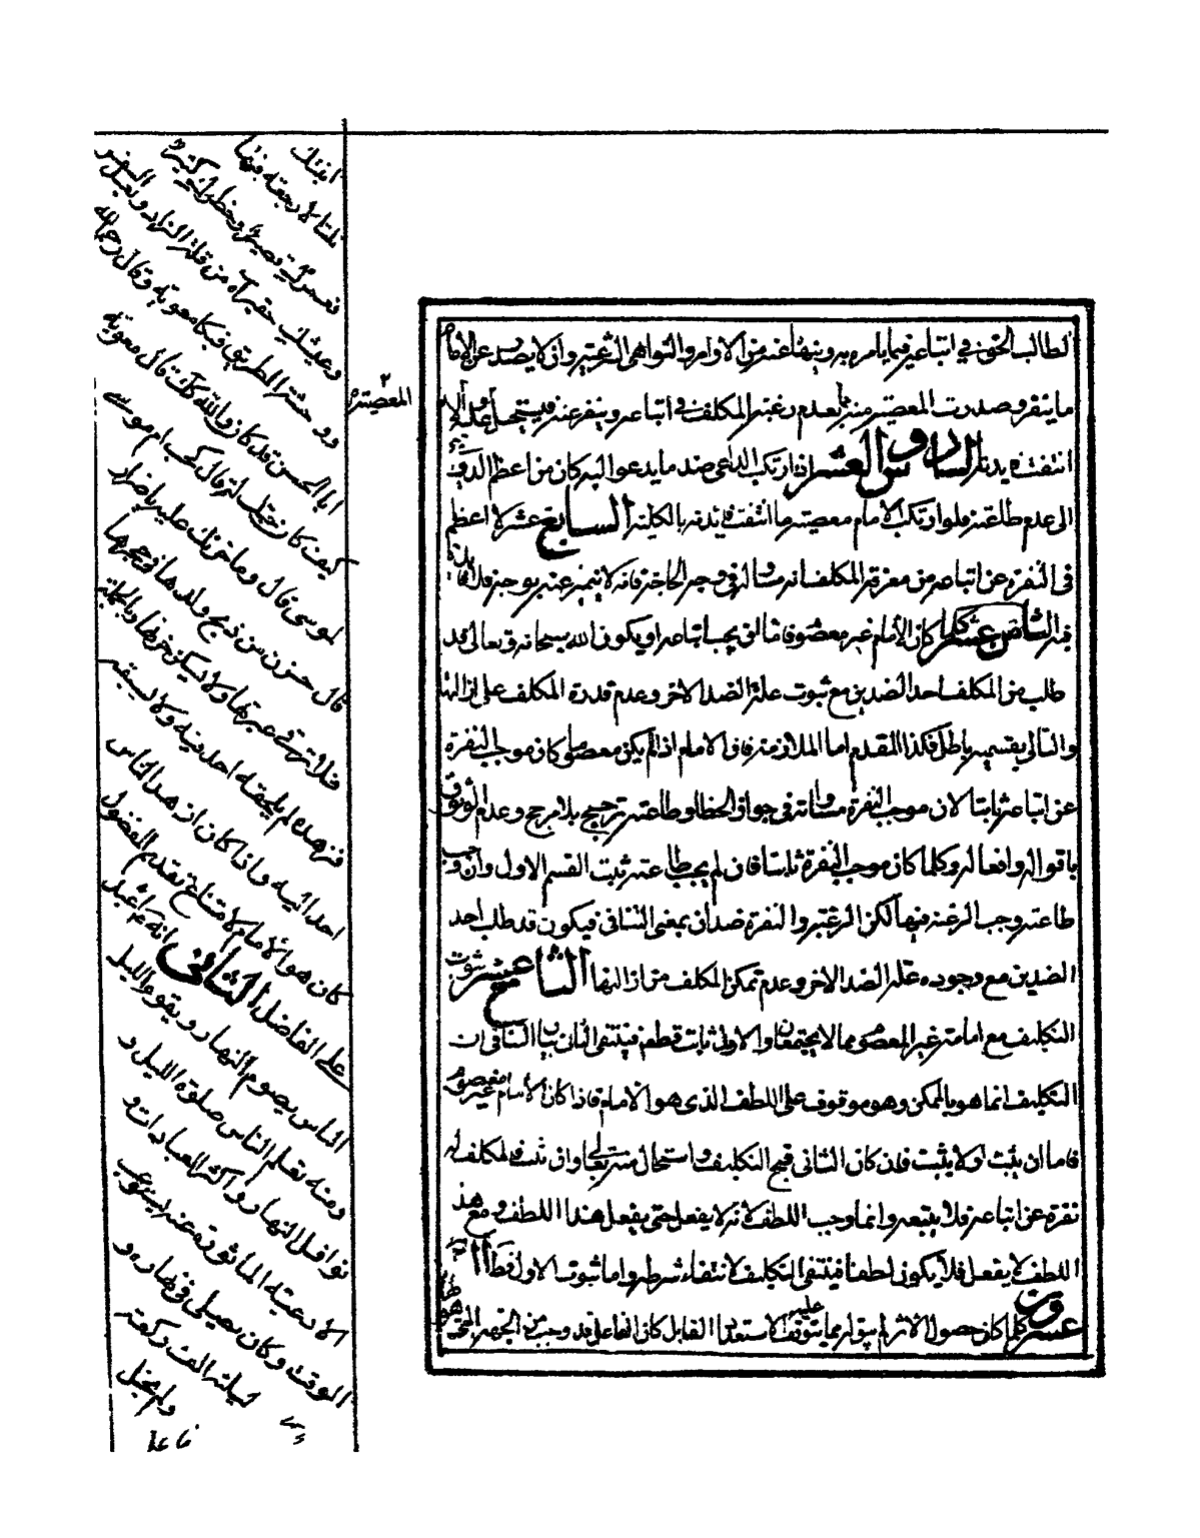 لطالب الحق في اتباعه فيما يامره به وينهاه عنه من الاوامر والنواهى الشرعية وان لا يصدر عن الامام
ما ينفر وصدرت المعصية منه بعدم رغبة المكلف في اتباعه وينفر عنه
انتفت فايدته السادس والعشر اذا ارتكب الداعى ضد ما يدعو اليه كان من اعظم
الى عدم طاعته فلو ارتكب الامام معصية ما انتفت فايدته بالكلية السابع عشر لا اعظم
فى النفرة عن اتباعه من معرفة المكلف انه مساو له في وجه الحاجة فانه لا يتميز عنه بوجه
فيه الثامن عشر كلما كان الامام غير معصوم فاما ان لا يجب اتباعه او يكون الله سبحانه وتعالى قد
طلب من المكلف احد الضدين مع ثبوت علة الضد الاخر وعدم قدرة المكلف على ازالتها
والتالى بقسميه باطل فكذا المقدم اما الملازمة فان الامام اذا لم يكن معصوما كان موجب النفرة
عن اتباعه ثابتا لان موجب النفرة مساواته في جواز الخطا وطاعته ترجيح بلا مرجح وعدم الوثوق
باقواله وافعاله وكلما كان موجب النفرة ثابتا فان لم يجب طاعته ثبت القسم الاول وان وجب
طاعته وجب الرغبة فيها لكن الرغبة والنفرة ضدان بمعنى التنافى فيكون قد طلب احد
الضدين مع وجود علة الضد الاخر وعدم تمكن المكلف من ازالتها التاسع عشر ثبوت
التكليف مع امامة غير المعصوم مما لا يجتمعان والاول ثابت قطعا فينتفى الثانى بيان التنافى ان
التكليف انما هو بالممكن وهو موقوف على اللطف الذى هو الامام فاذا كان الامام غير معصوم
فاما ان يثبت او لا يثبت فان كان الثانى قبح التكليف واستحال منه تعالى وان ثبت فللمكلف
نفرة عن اتباعه فلا يتبعه وانما وجب اللطف لانه لا يفعل حتى يفعل هذا اللطف ومع هذا
اللطف لا يفعل فلا يكون لطفا فينتفى التكليف لانتفاء شرطه واما ثبوت الاول فظاهر
عشرون كلما كان حصول الاثر يتوقف عليه الاستعداد القابل كان الفاعل قد وجب من الجهة
المعصية
ابنك
قلنا لا رجعة فيها
فعمرك قصير وخطرك كثير
وعيشك حقير آه من قلة الزاد وبعد السفر
ووحشة الطريق فبكا معوية وقال رحم الله
ابا الحسن قد كان والله كذلك قال معوية
كيف كان حبك له قال كحب ام موسى
لموسى قال وما حزنك عليه يا ضرار
قال حزن من ذبح ولدها في حجرها
فلا ترقى عبرتها ولا يسكن حزنها وبالجملة
فزهده لم يلحقه احد فيه ولا يسبقه
احد اليه واذا كان ازهد الناس
كان هو الامام لامتناع تقدم المفضول
على الفاضل الثانى انه كان اعبد
الناس يصوم النهار ويقوم الليل
ومنه تعلم الناس صلوة الليل و
نوافل النهار واكثر العبادات و
الادعية الماثورة عنه يستوعب
الوقت وكان يصلى في نهاره و
ليلته الف ركعة
ولم يخل